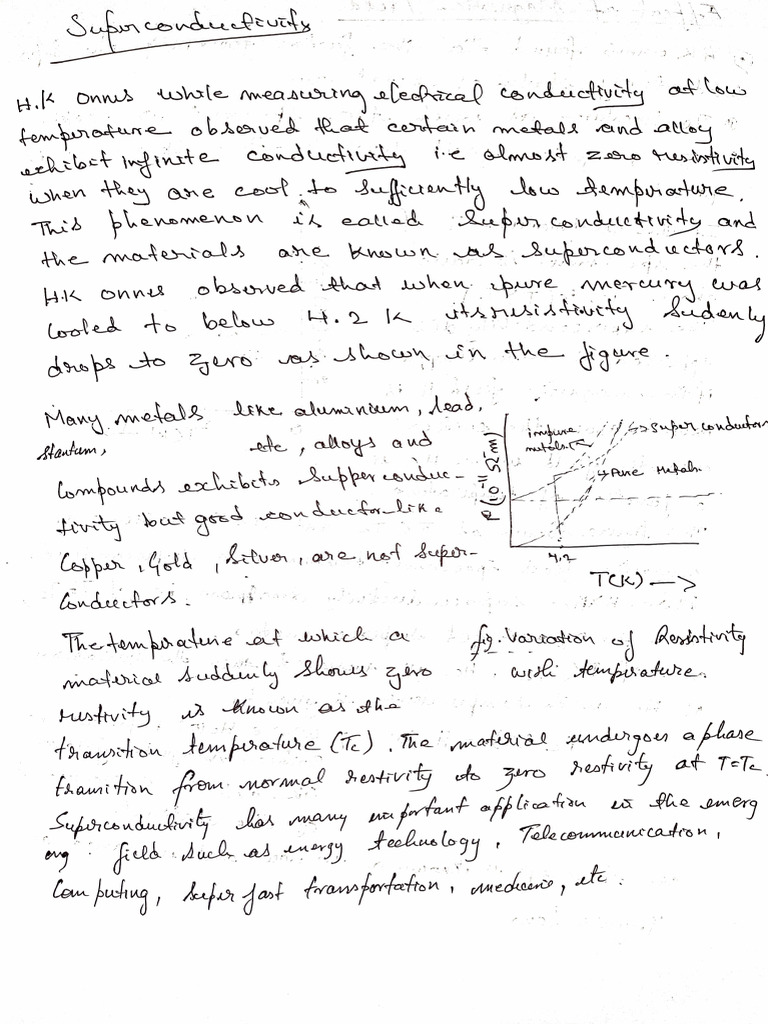 Superconductivity
H.K onnes while measuring electrical conductivity at low
temperature observed that certain metals and alloy
exhibit infinite conductivity i.e almost zero resistivity
when they are cool to sufficiently low temperature.
This phenomenon is called Superconductivity and
the materials are known as superconductors.
H.K onnes observed that when pure mercury was
cooled to below 4.2 K its resistivity Sudenly
drops to zero as shown in the figure.
Many metals like aluminium, lead,
etc, alloys and
Compounds exhibits Supperconduc-
tivity but good conductor like
Copper, Gold, Silver, are not Super-
Conductors.
impure
metals
Super conductor
Pure Metals
ρ(10⁻¹¹ Ωm)
4.2
T(K) →
fig. Variation of Resistivity
with temperature.
The temperature at which a
material suddenly shows zero
restivity is known as the
transition temperature (Tc). The material undergoes a phase
transition from normal restivity to zero restivity at T=Tc
Superconductivity has many important application in the emerg
ing field such as energy technology, Telecommunication,
Computing, super fast transportation, medicine, etc.